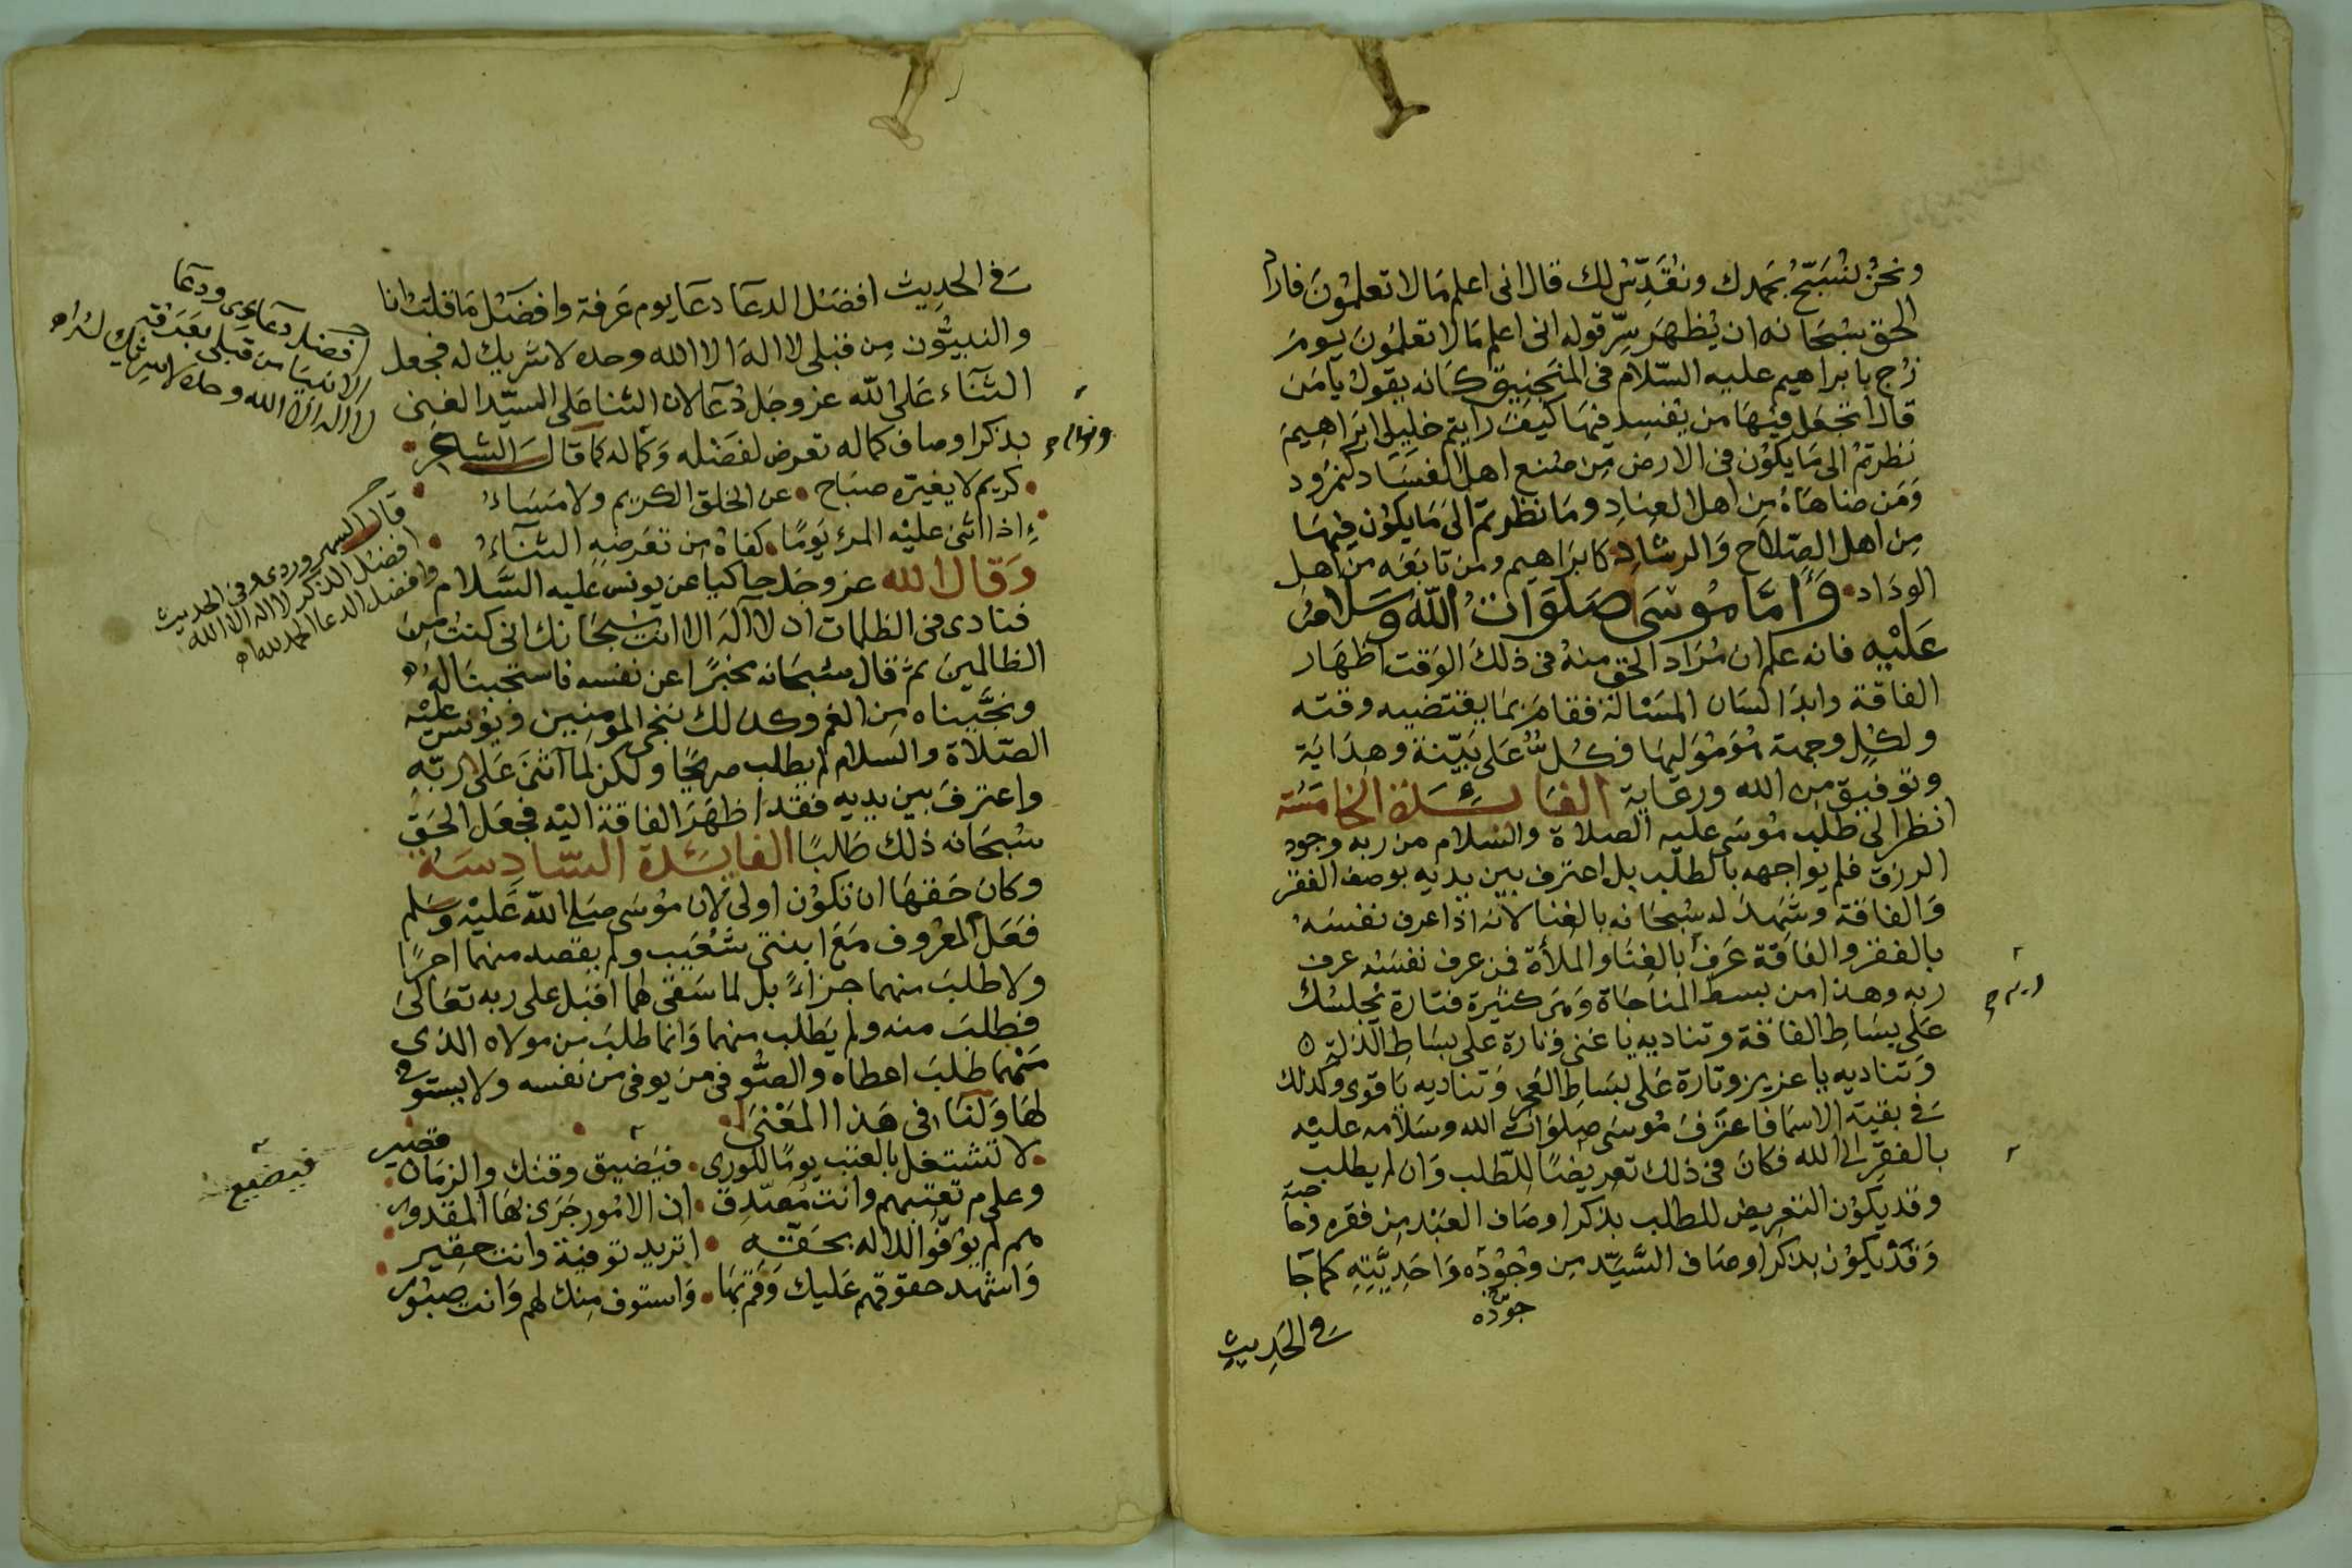 ونحن نسبح بحمدك ونقدس لك قال انى اعلم ما لا تعلمون فاراد
الحق سبحانه ان يظهر سر قوله انى اعلم ما لا تعلمون يوم
زج بابراهيم عليه السلام فى المنجنيق كانه يقول يا من
قال اتجعل فيها من يفسد فيها كيف رايتم خليلى ابراهيم
نظرتم الى ما يكون فى الارض من صنع اهل الفساد كنمرود
ومن ضاهاه من اهل العناد وما نظرتم الى ما يكون فيها
من اهل الصلاح والرشاد كابراهيم ومن تابعه من اهل
الوداد واما موسى صلوات الله وسلامه
عليه فانه علم ان مراد الحق منه فى ذلك الوقت اظهار
الفاقة وابدا لسان المسئالة فقام بما يقتضيه وقته
ولكل وجهة هو موليها فكل على بينة وهداية
وتوفيق من الله ورعاية الفائدة الخامسة
انظر الى طلب موسى عليه الصلاة والسلام من ربه وجود
الرزق فلم يواجهه بالطلب بل اعترف بين يديه بوصف الفقر
والفاقة وشهد له سبحانه بالغنا لانه اذا عرف نفسه
بالفقر والفاقة عرف بالغنا والملأة فمن عرف نفسه عرف
ربه وهذا من بسط المناجاة وهى كثيرة فتارة يجلسك
على بساط الفاقة وتناديه يا غنى وتارة على بساط الذلة
وتناديه يا عزيز وتارة على بساط العجز وتناديه يا قوى وكذلك
فى بقية الاسما فاعترف موسى صلوات الله وسلامه عليه
بالفقر الى الله فكان فى ذلك تعريضا للطلب وان لم يطلب
وقد يكون التعريض للطلب بذكر اوصاف العبد من فقره وحاجته
وقد يكون بذكر اوصاف السيد من وجوده واحديته كما جا
جوده
فى الحديث
فى الحديث افضل الدعا دعا يوم عرفة وافضل ما قلت انا
والنبيون من قبلى لا اله الا الله وحده لا شريك له فجعل
الثناء على الله عز وجل دعا لان الثنا على السيد الغنى
بذكر اوصاف كماله تعرض لفضله وكماله كما قال الشاعر
كريم لا يغيره صباح عن الخلق الكريم ولا مساء
اذا اثنى عليه المرء يوما كفاه من تعرضه الثناء
وقال الله عز وجل حاكيا عن يونس عليه السلام
فنادى فى الظلمات ان لا اله الا انت سبحانك انى كنت من
الظالمين ثم قال سبحانه مخبرا عن نفسه فاستجبنا له
ونجيناه من الغم وكذلك ننجى المومنين ويونس عليه
الصلاة والسلام لم يطلب صريحا ولكن لما اثنى على ربه
واعترف بين يديه فقد اظهر الفاقة اليه فجعل الحق
سبحانه ذلك طلبا الفائدة السادسة
وكان حقها ان تكون اولى لان موسى صلى الله عليه وسلم
فعل المعروف مع ابنتى شعيب ولم يقصد منهما اجرا
ولا طلب منهما جزاء بل لما سقى لهما اقبل على ربه تعالى
فطلب منه ولم يطلب منهما وانما طلب من مولاه الذى
مهما طلب اعطاه والصوفى من يوفى من نفسه ولا يستوفى
لها ولنا فى هذا المعنى
لا تشتغل بالعتب يوما للورى فيضيق وقتك والزمان قصير
وعلام تعتبهم وانت مصدق ان الامور جرى بها المقدور
هم لم يوفوا للاله بحقه اتريد توفية وانت حقير
واشهد حقوقهم عليك وقم بها واستوف منك لهم وانت صبور
افضل دعاءى ودعا
الانبيا من قبلى بعرفة
لا اله الا الله وحده لا شريك له اه
قال السهروردى وفى الحديث
افضل الذكر لا اله الا الله
وافضل الدعا الحمد لله اه
فيضيع